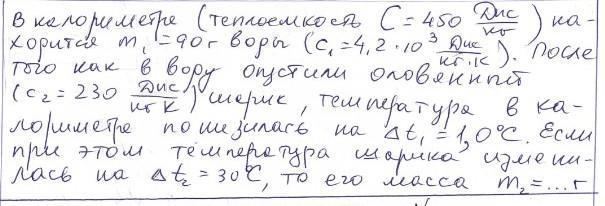 В калориметре (теплоемкость C = 450 Дж/кг) на-
ходится m₁ = 90 г воды (c₁ = 4,2 · 10³ Дж/кг·К). После
того как в воду опустили оловянный
(c₂ = 230 Дж/кг К) шарик, температура в ка-
лориметре понизилась на Δt₁ = 1,0°C. Если
при этом температура шарика измени-
лась на Δt₂ = 30°C, то его масса m₂ = ... г